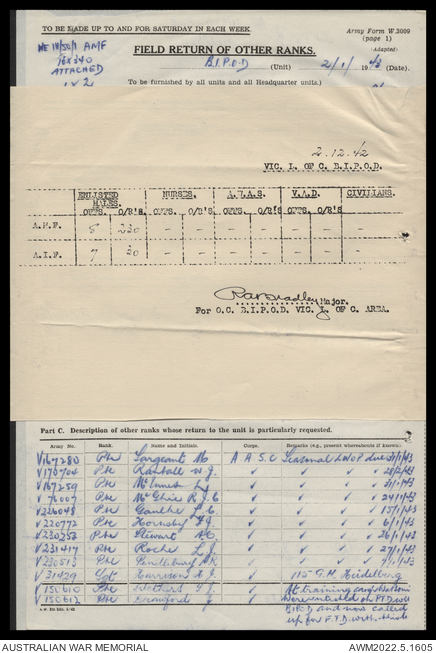 TO BE MADE UP TO AND FOR SATURDAY IN EACH WEEK
Army Form W.3009
(page 1)
(Adapted)
FIELD RETURN OF OTHER RANKS.
AMF
16x340
ATTACHED
1x2
B.I.P.O.D (Unit) 2/1/1943 (Date).
To be furnished by all units and all Headquarter units.)
2.12.42
VIC. L. OF C. B.I.P.O.D.
ENLISTED MALES. NURSES. A.W.A.S. V.A.D. CIVILIANS.
OFFS. O/R'S. OFFS. O/R'S. OFFS. O/R'S OFFS. O/R'S
A.M.F. 8 230 - - - - - - -
A.I.F. 7 30 - - - - - - -
Bradley Major.
For O.C. B.I.P.O.D. VIC. L. OF C. AREA.
Part C. Description of other ranks whose return to the unit is particularly requested.
Army No. Rank. Name and Initials. Corps. Remarks (e.g., present whereabouts if known).
V167280 Pte Sargeant A A S C Seasonal LWOP due 31/1/43
V170704 Pte Randall W.J. ✓ ✓ ✓ ✓ 28/2/43
V167259 Pte McInnes ✓ ✓ ✓ ✓ 31/1/43
V76007 Pte R.J.C ✓ ✓ ✓ ✓ 24/1/43
V226048 Pte L.C. ✓ ✓ ✓ ✓ 15/1/43
V220772 Pte Hornsby F.J. ✓ ✓ ✓ ✓ 6/1/43
V230253 Pte Stewart ✓ ✓ ✓ ✓ 26/1/43
V231417 Pte Roche L.J. ✓ ✓ ✓ ✓ 27/1/43
V230513 Pte Pendlebury ✓ ✓ ✓ ✓ 9/1/43
V31429 Cpl Harrison A.J. ✓ 115 G.H. Heidelberg
V150610 Pte T.J. ✓ At training camp
V150612 Pte Crawford J ✓ were enlisted on P.T.D.
B.I.P.O.D and now called
up for F.T.D. with
AUSTRALIAN WAR MEMORIAL
AWM2022.5.1605